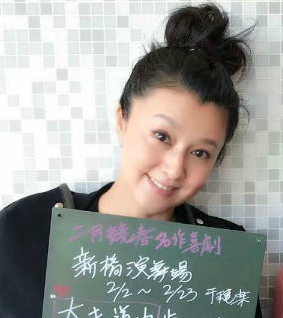 二月競春名作喜劇
新橋演舞場
2/2～2/23 千穐楽